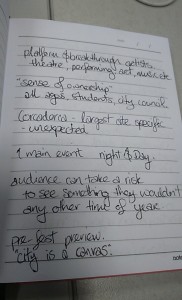 platform & breakthrough artists
theatre, performing art, music etc
"sense of ownership"
all ages, students, city council
- largest site specific
- unexpected
1 main event night & Day.
audience can take a risk
to see something they wouldn't
any other time of year
pre fest preview.
"city is a canvas".